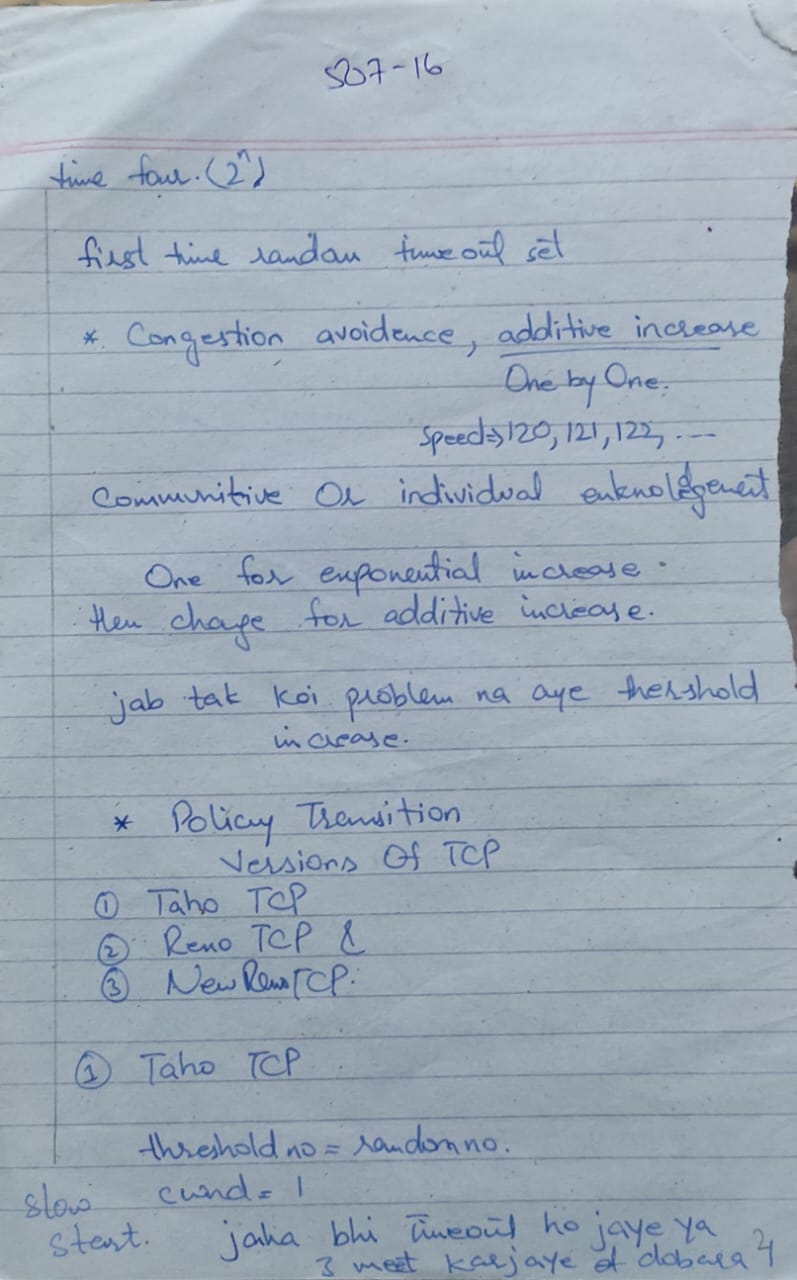 S07-16
time four. (2ⁿ)
first time randam timeout set
* Congestion avoidence, additive increase
One by One.
Speed⇒120, 121, 122, ----
Communitive Or individual enknoldgement
One for exponential increase.
then change for additive increase.
jab tak koi problem na aye thershold
increase.
* Policy Transition
Versions Of TCP
① Taho TCP
② Reno TCP &
③ NewReno TCP.
① Taho TCP
threshold no = random no.
slow cwnd = 1
start. jaha bhi timeout ho jaye ya
3 meet karjaye dobara